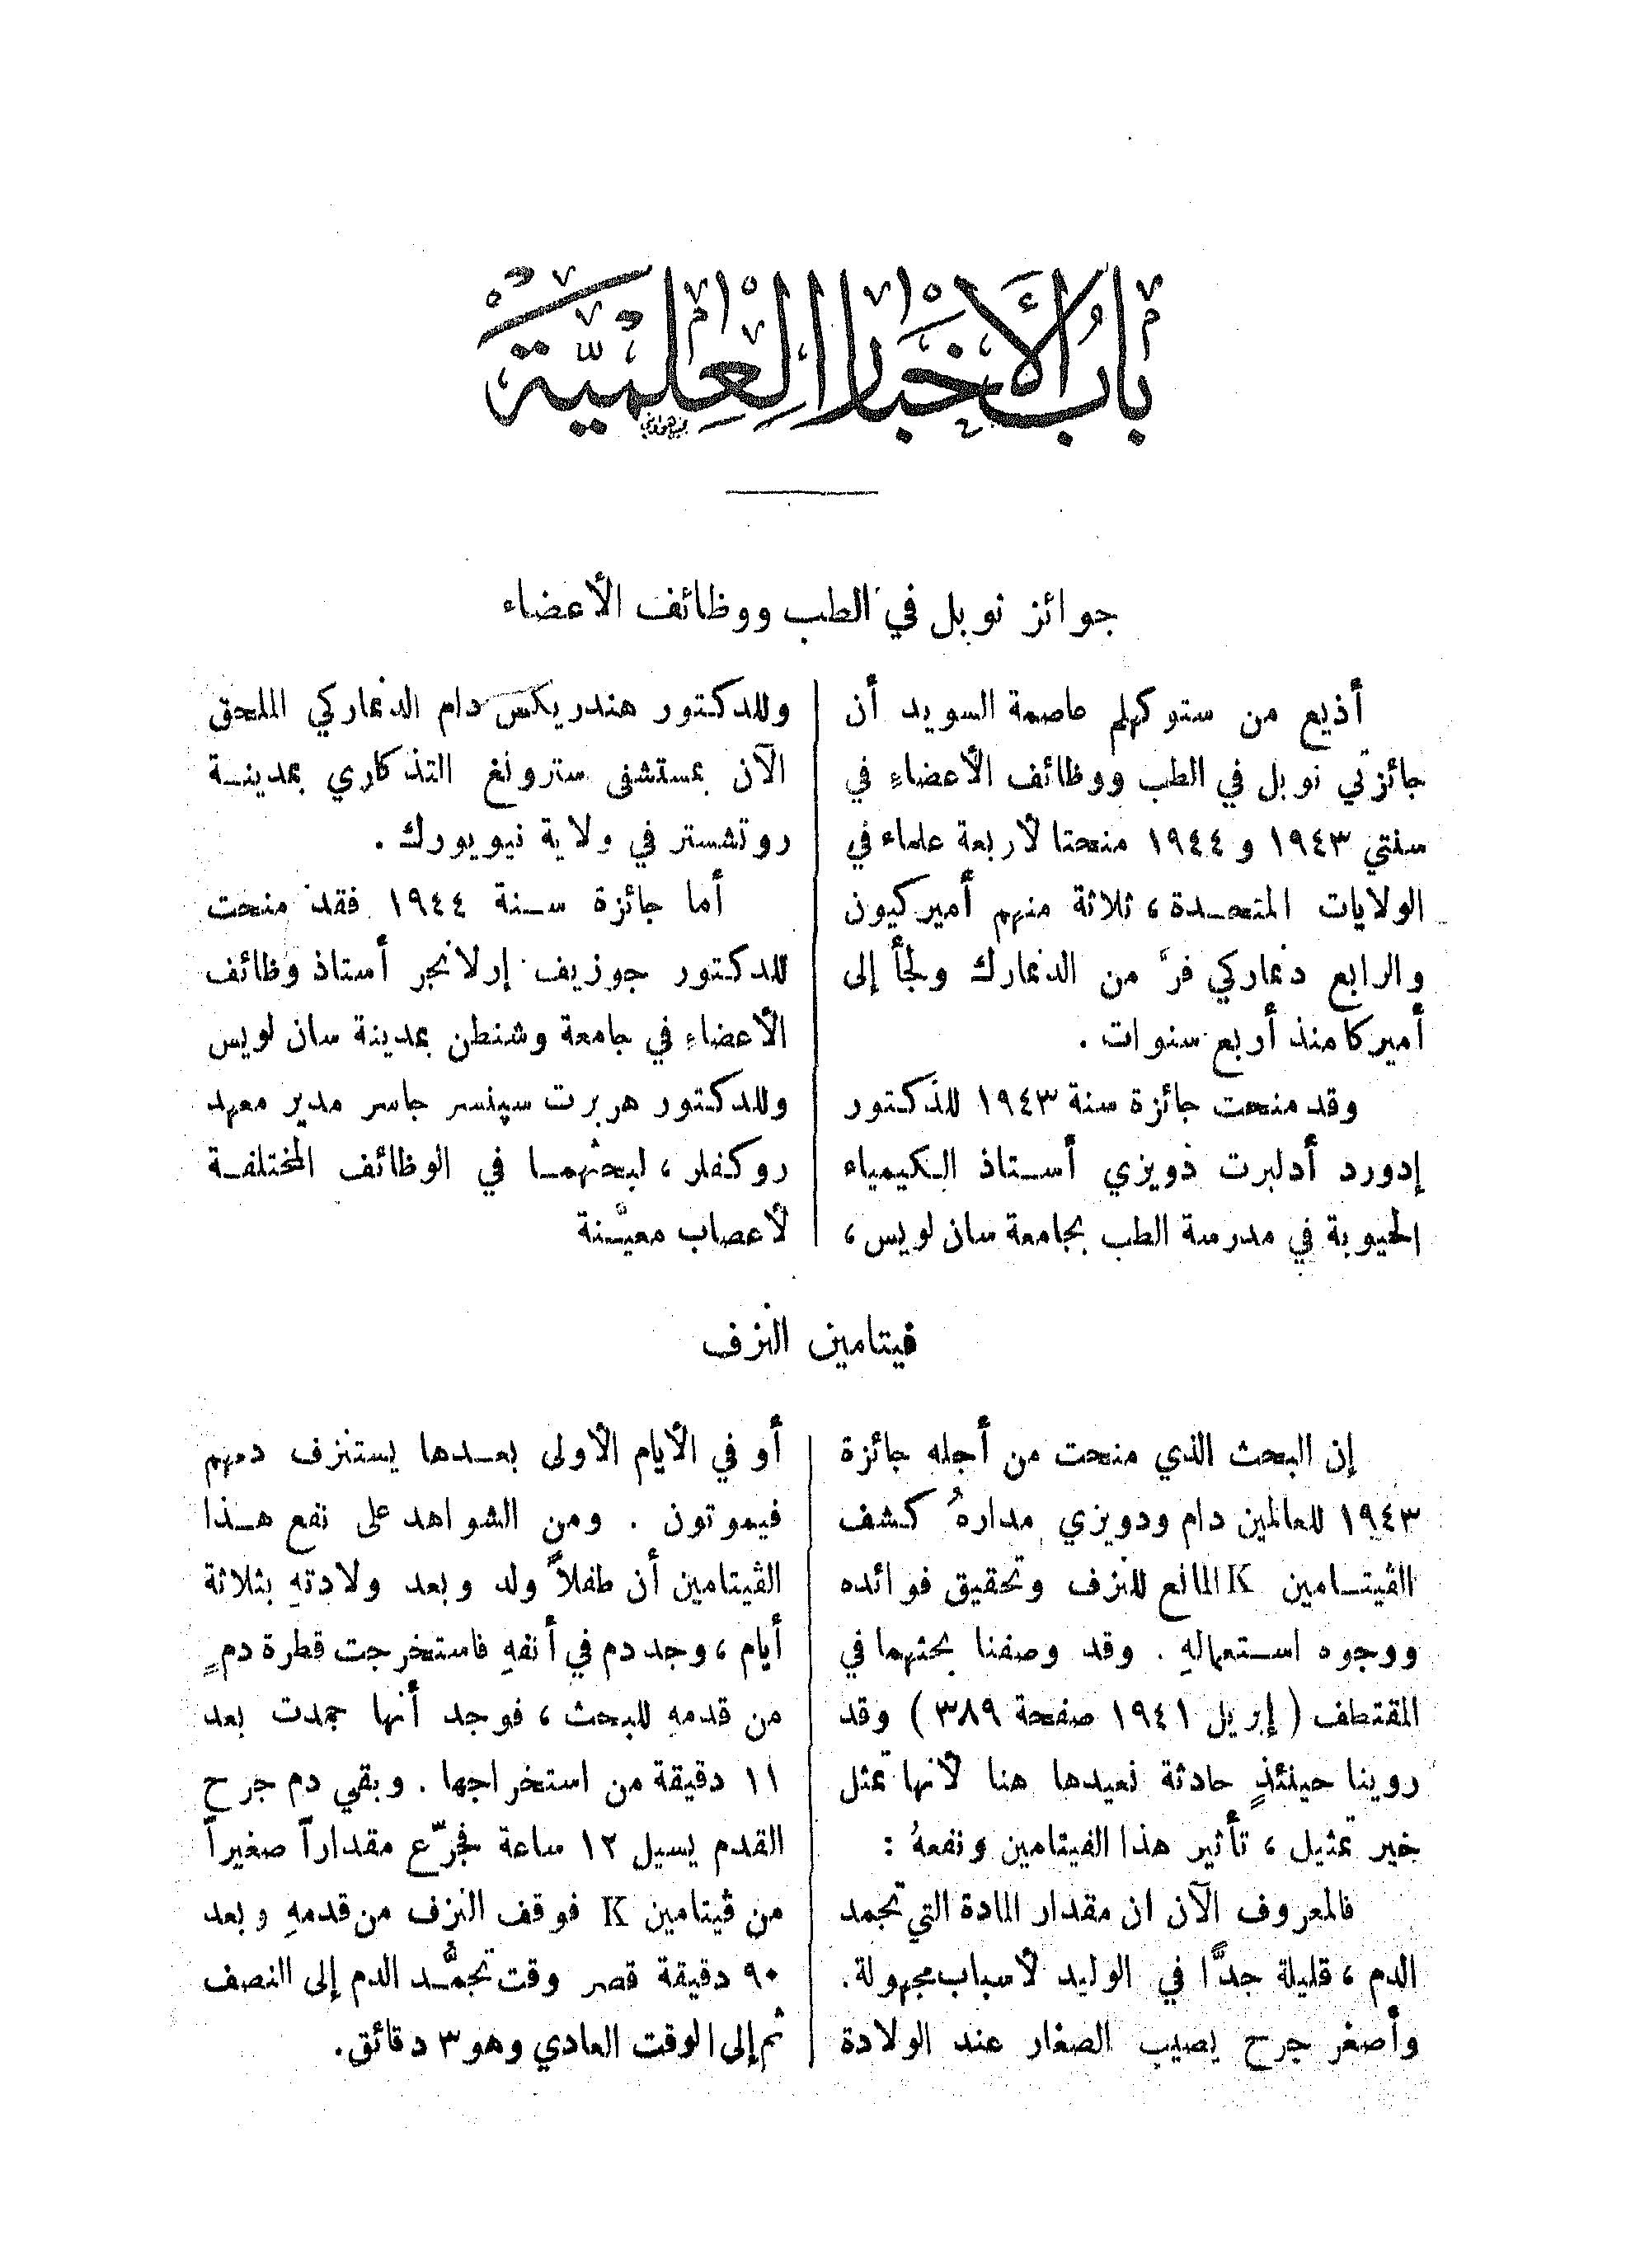 باب الأخبار العلمية
جوائز نوبل في الطب ووظائف الأعضاء
أذيع من ستوكهلم عاصمة السويد أن
جائزتي نوبل في الطب ووظائف الأعضاءِ في
سنتي ١٩٤٣ و ١٩٤٤ منحتا لأربعة علماء في
الولايات المتحدة ، ثلاثة منهم أميركيون
والرابع دنماركي فرَّ من الدنمارك ولجأ إلى
أميركا منذ أربع سنوات .
وقد منحت جائزة سنة ١٩٤٣ للدكتور
إدورد أدلبرت دويزي أستاذ الكيمياء
الحيوية في مدرسة الطب بجامعة سان لويس ،
وللدكتور هندريكس دام الدنماركي الملحق
الآن بمستشفى سترونغ التذكاري بمدينة
روتشستر في ولاية نيويورك .
أما جائزة سنة ١٩٤٤ فقد منحت
للدكتور جوزيف إرلانجر أستاذ وظائف
الأعضاءِ في جامعة وشنطن بمدينة سان لويس
وللدكتور هربرت سپنسر جاسر مدير معهد
روكفلر ، لبحثهما في الوظائف المختلفة
لأعصاب معيَّنة
فيتامين النزف
إن البحث الذي منحت من أجله جائزة
١٩٤٣ للعالمين دام ودويزي مدارهُ كشف
الڤيتامين K المانع للنزف وتحقيق فوائده
ووجوه استعمالهِ . وقد وصفنا بحثهما في
المقتطف ( إبريل ١٩٤١ صفحة ٣٨٩ ) وقد
روينا حينئذٍ حادثة نعيدها هنا لأنها تمثل
خير تمثيل ، تأثير هذا الفيتامين ونفعهُ :
فالمعروف الآن ان مقدار المادة التي تجمد
الدم ، قليلة جدًّا في الوليد لأسباب مجهولة .
وأصغر جرح يصيب الصغار عند الولادة
أو في الأيام الأولى بعدها يستنزف دمهم
فيموتون . ومن الشواهد على نفع هذا
الڤيتامين أن طفلاً ولد وبعد ولادتهِ بثلاثة
أيام ، وجد دم في أنفهِ فاستخرجت قطرة دمٍ
من قدمهِ للبحث ، فوجد أنها جمدت بعد
١١ دقيقة من استخراجها . وبقي دم جرح
القدم يسيل ١٢ ساعة فجرّع مقداراً صغيراً
من ڤيتامين K فوقف النزف من قدمهِ وبعد
٩٠ دقيقة قصر وقت تجمُّد الدم إلى النصف
ثم إلى الوقت العادي وهو ٣ دقائق .